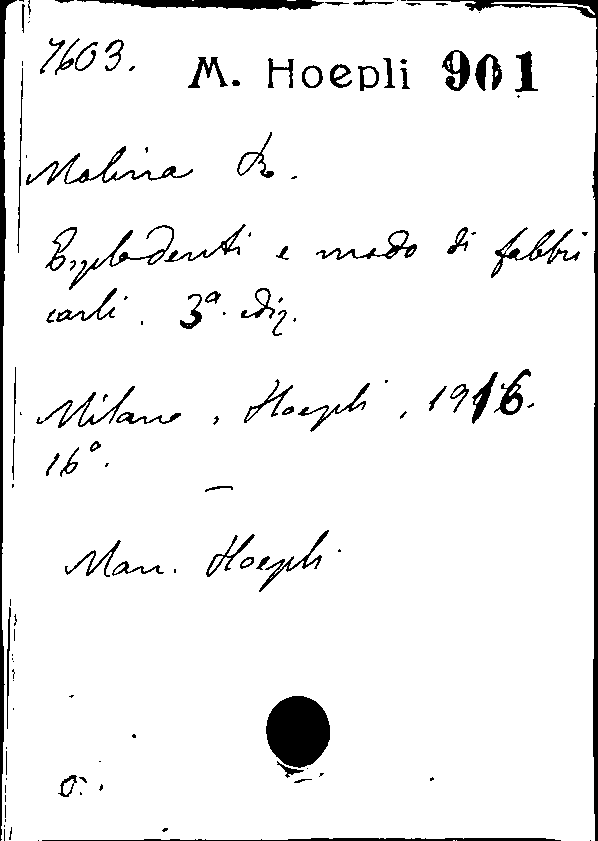 7603.
M. Hoepli 901
Molina R.
Esplodenti e modo di fabbri
carli. 3ª ediz.
Milano, Hoepli, 1916.
16º.
Man. Hoepli